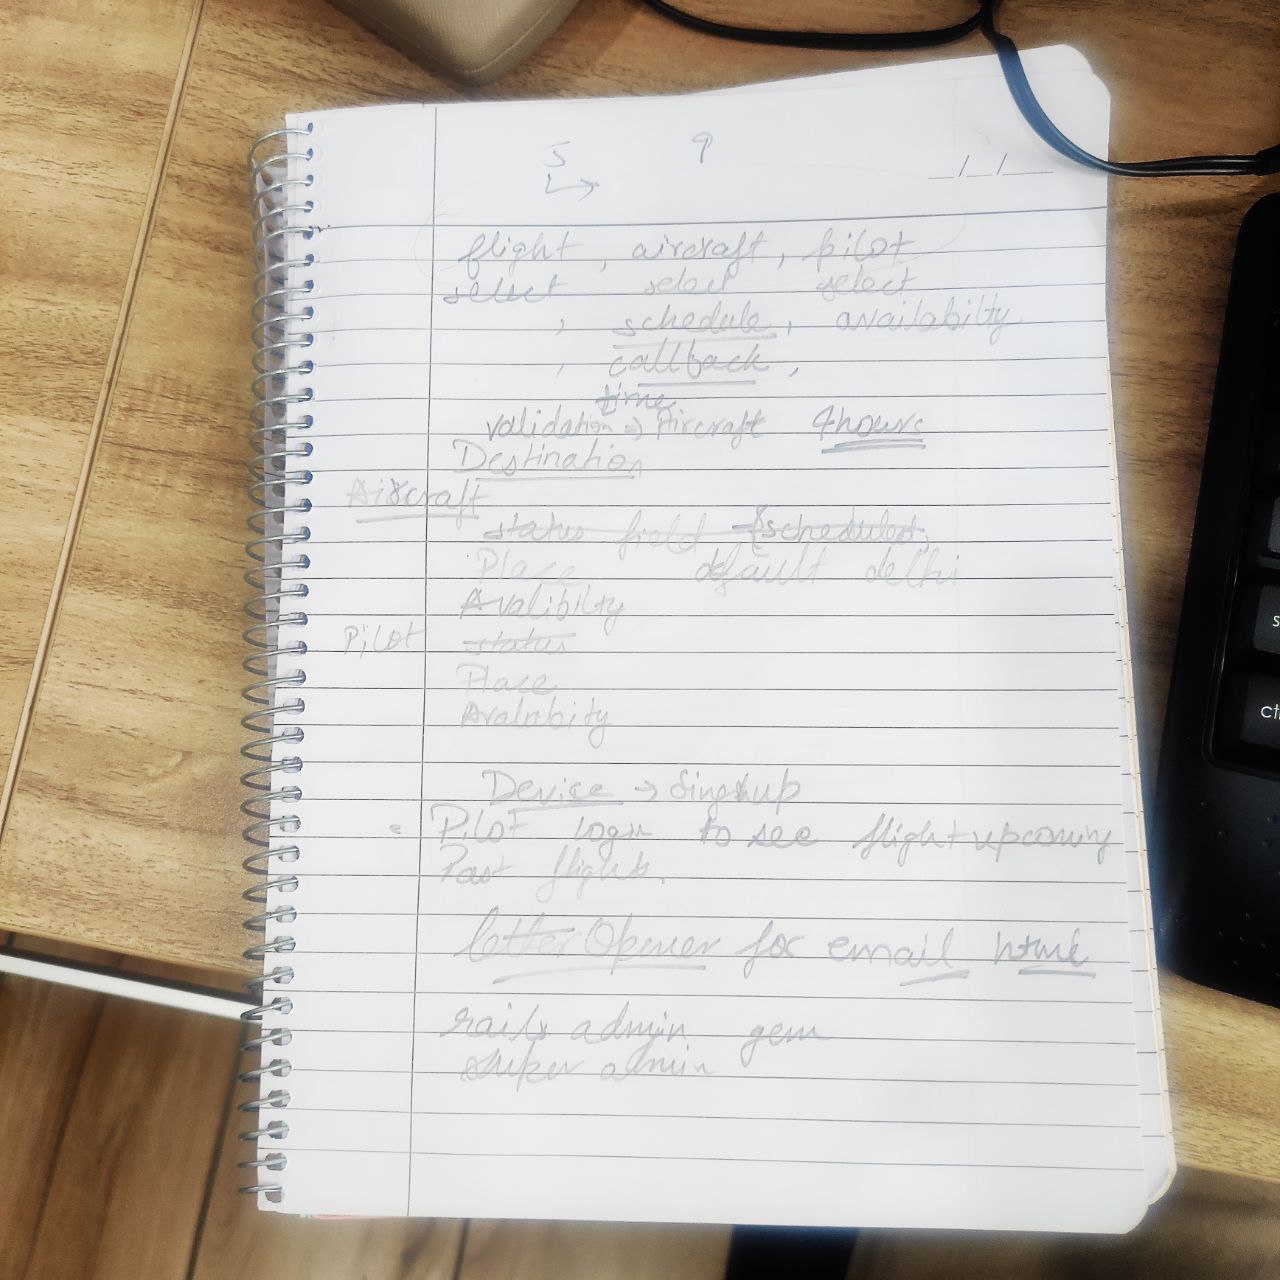 5 9
_/_/_
flight, aircraft, pilot
select select select
, schedule, availabilty
, callback,
time
validation => Aircraft 4hours
Destination
Aircraft
status field {scheduled,
Place default delhi
Avalibilty
Pilot status
Place
Avalnbity
Device → Singhup
Pilot login to see flight upcoming
Past flights.
letter Opener for email html
rails admin gem
super admin
s
ct